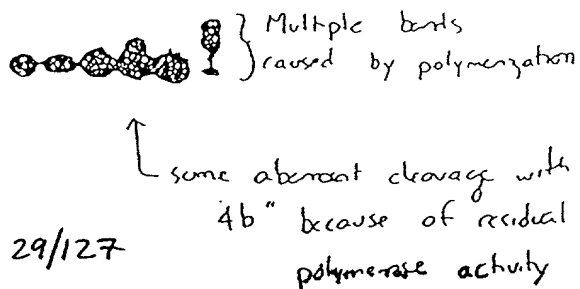 Multiple bands
caused by polymerization
some aberrant cleavage with
4b" because of residual
polymerase activity
29/127